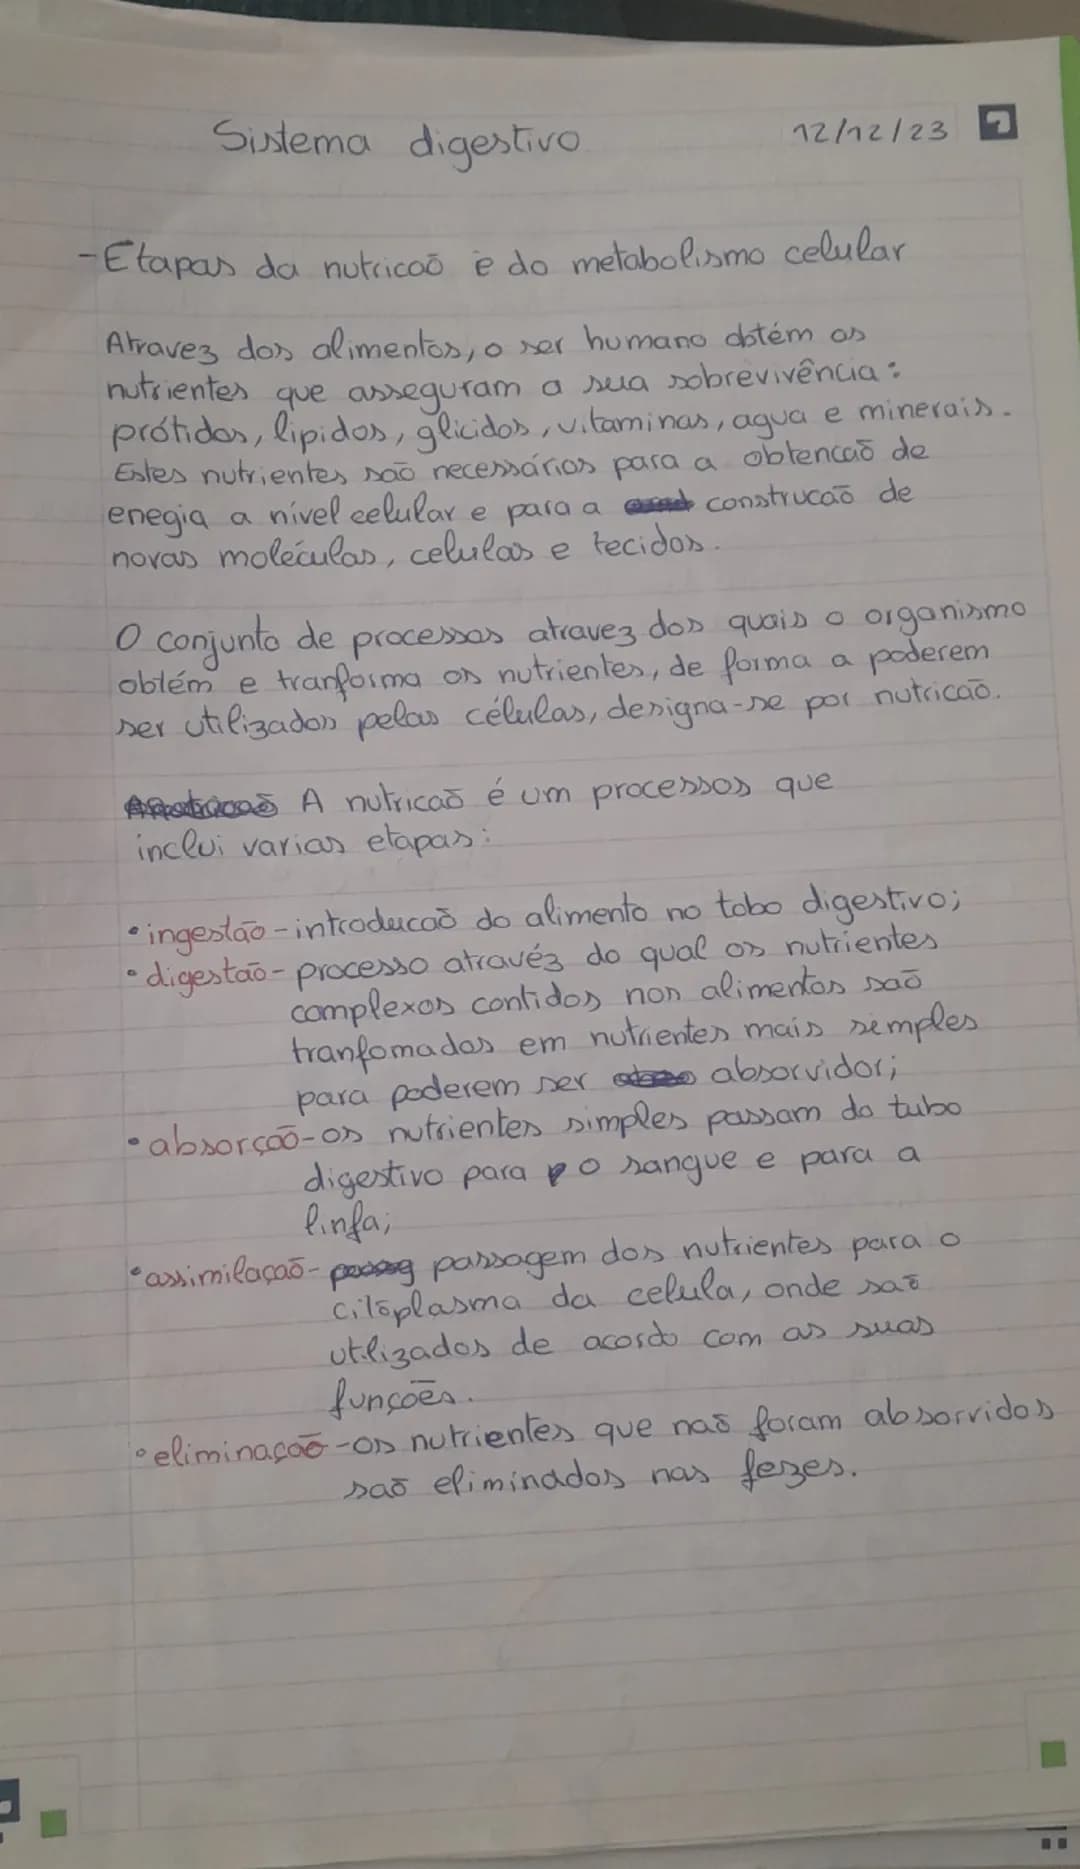 Sistema digestivo 12/12/23
-Etapas da nutricaõ e do metabolismo celular
Atravez dos alimentos, o ser humano obtém os
nutrientes que asseguram a sua sobrevivência:
prótidos, lipidos, glicidos, vitaminas, agua e minerais.
Estes nutrientes saõ necessários para a obtencaõ de
enegia a nível celular e para a construcaõ de
novas moléculas, celulas e tecidos.
O conjunto de processos atravez dos quais o organismo
obtém e tranforma os nutrientes, de forma a poderem
ser utilizados pelas células, designa-se por nutricaõ.
A nutricaõ é um processos que
inclui varias etapas:
•ingestão-introducaõ do alimento no tobo digestivo;
•digestaõ-processo atravéz do qual os nutrientes
complexos contidos nos alimentos saõ
tranfomados em nutrientes mais simples
para poderem ser absorvidos;
•absorçaõ-os nutrientes simples passam do tubo
digestivo para o sangue e para a
linfa;
•assimilaçaõ-passagem dos nutrientes para o
citoplasma da celula, onde saõ
utilizados de acordo com as suas
funçoẽs.
•eliminaçaõ-os nutrientes que naõ foram absorvidos
saõ eliminados nas fezes.